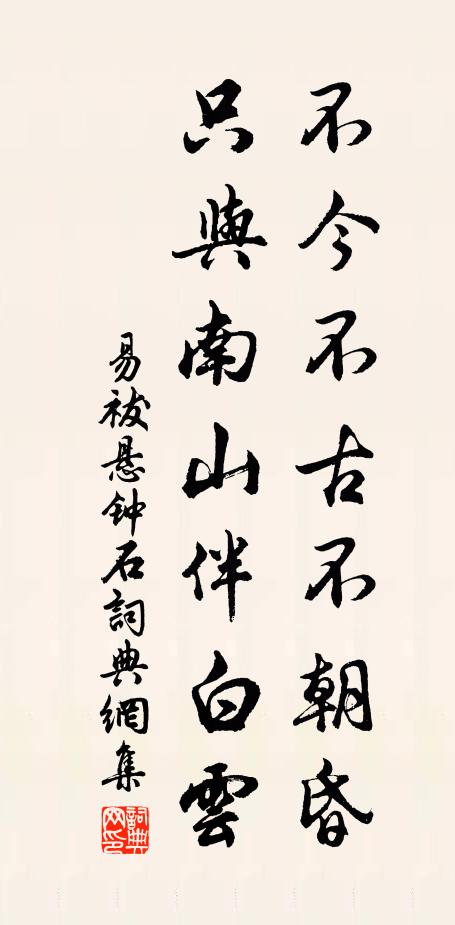 不今不古不朝昏
只與南山伴白雲
易祓悬钟石詞典網集
詞典网印